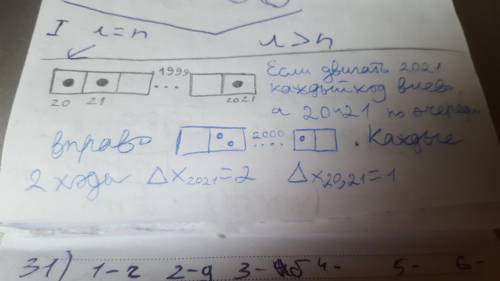 I r=n r>n
1999
...
20 21 2021
Если двигать 2021
каждый ход влево,
а 20 и 21 по очереди
вправо 2000 .... . Каждые
2 ходы Δx2021=2 Δx20,21=1
31) 1-г 2-д 3-б 4- 5- 6-